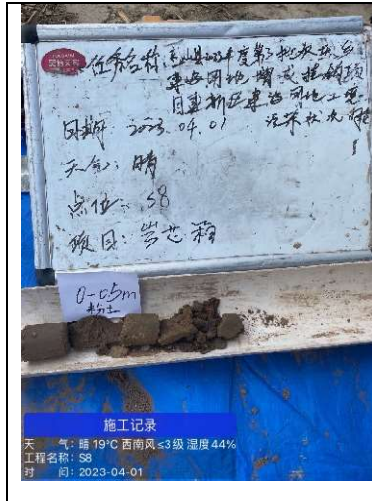 任务名称:
建设用地增减挂钩项
目
建设用地土壤
污染状况
日期: 2023.04.01
天气: 晴
点位: S8
项目: 岩芯箱
0-0.5m
粉土
施工记录
天 气: 晴 19°C 西南风 ≤3级 湿度44%
工程名称: S8
时 间: 2023-04-01